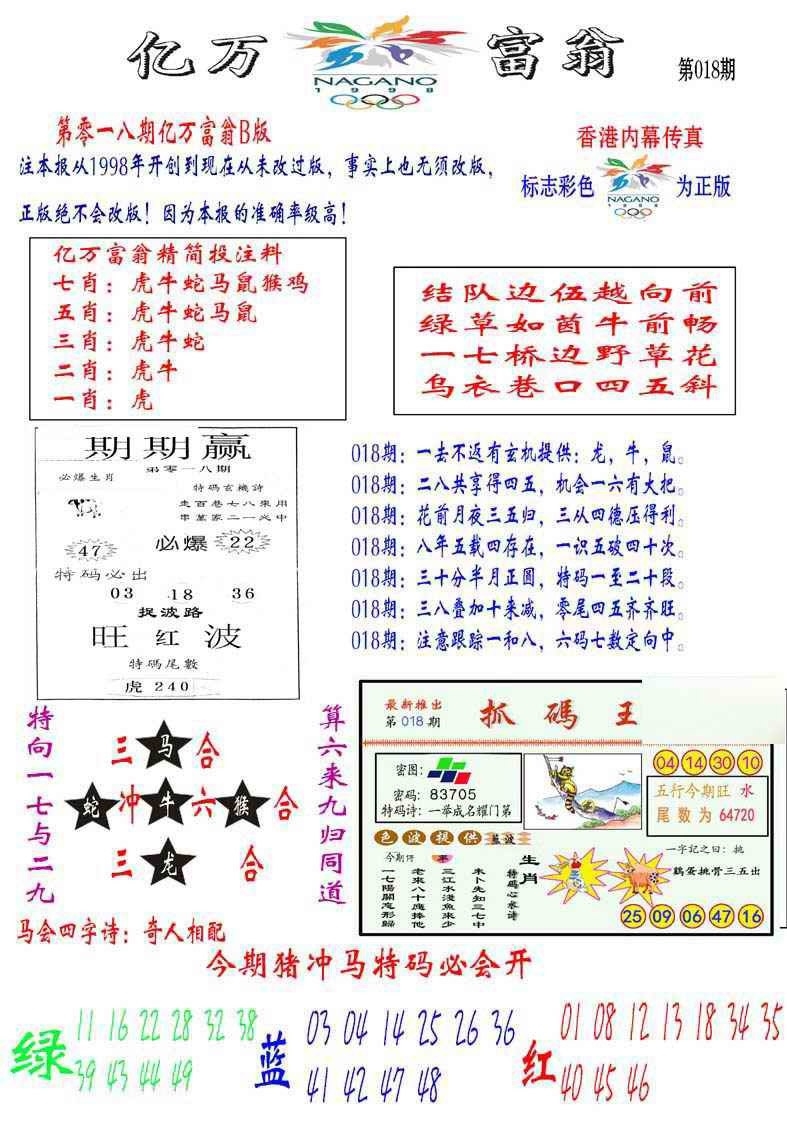 亿万富翁
NAGANO
1998
第018期
第零一八期亿万富翁B版
注本报从1998年开创到现在从未改过版，事实上也无须改版，
正版绝不会改版！因为本报的准确率级高！
香港内幕传真
标志彩色
NAGANO
1998
为正版
亿万富翁精简投注料
七肖：虎牛蛇马鼠猴鸡
五肖：虎牛蛇马鼠
三肖：虎牛蛇
二肖：虎牛
一肖：虎
结队边伍越向前
绿草如茵牛前畅
一七桥边野草花
乌衣巷口四五斜
期期赢
第零一八期
必爆生肖
特码玄機詩
走百巷七八来用
串萬家二一必中
47
必爆
22
特码必出
03 18 36
捉波路
旺红波
特码尾數
虎240
018期：一去不返有玄机提供：龙，牛，鼠。
018期：二八共享得四五，机会一六有大把。
018期：花前月夜三五归，三从四德压得利。
018期：八年五载四存在，一识五破四十次。
018期：三十分半月正圆，特码一至二十段。
018期：三八叠加十来减，零尾四五齐齐旺。
018期：注意跟踪一和八，六码七数定向中。
特向一七与二九
三马合
蛇冲牛六猴合
三龙合
算六来九归同道
马会四字诗：奇人相配
最新推出
第018期
抓碼王
密图：
密码：83705
特码诗：一举成名耀门第
色波提供
蓝波
04 14 30 10
五行今期旺 水
尾数为64720
今期
特码心水诗
未卜先知三七中
三江水淺魚來少
老来八十應捧他
一七陽關忘形歸
生肖
一字記之曰：挑
鷄蛋挑骨三五出
25 09 06 47 16
今期猪冲马特码必会开
绿
11 16 22 28 32 38
39 43 44 49
蓝
03 04 14 25 26 36
41 42 47 48
红
01 08 12 13 18 34 35
40 45 46